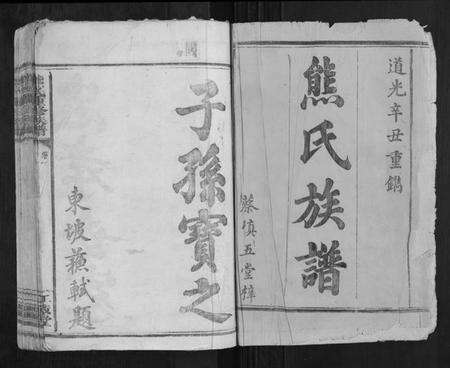 道光辛丑重鐫
熊氏族譜
五堂梓
子孫寶之
東坡蘇軾題